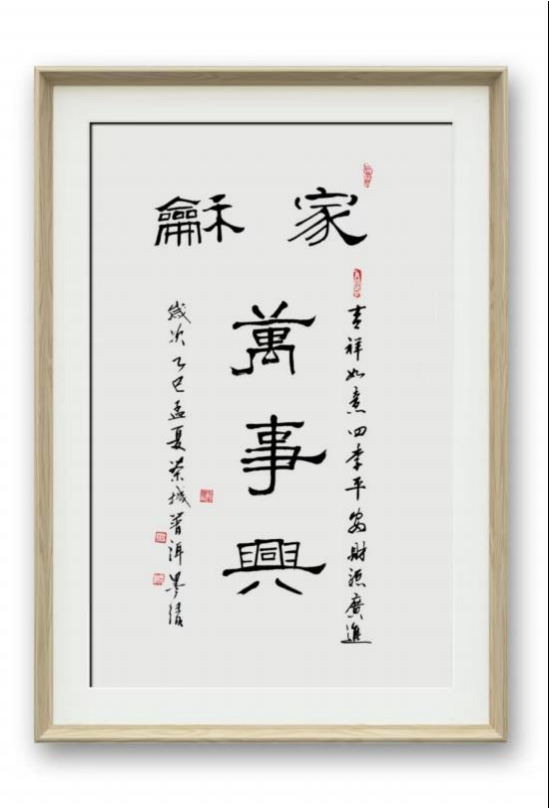 家龢
萬事興
吉祥如意四季平安財源廣進
歲次乙巳孟夏茶城普洱